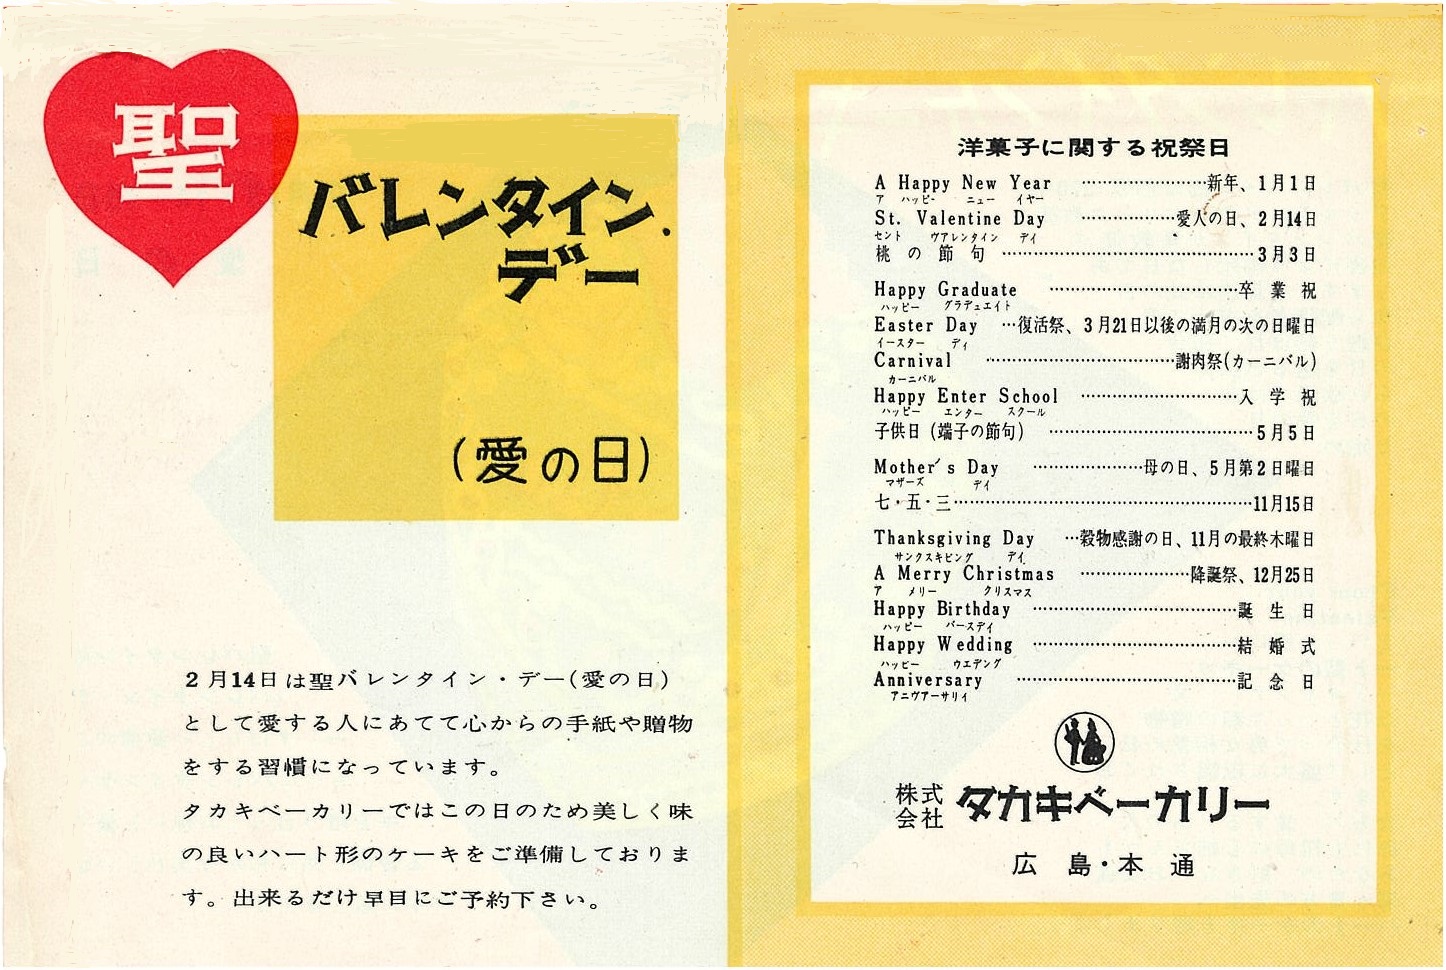 聖
バレンタイン・
デー
(愛の日)
2月14日は聖バレンタイン・デー(愛の日)
として愛する人にあてて心からの手紙や贈物
をする習慣になっています。
タカキベーカリーではこの日のため美しく味
の良いハート形のケーキをご準備しておりま
す。出来るだけ早目にご予約下さい。
洋菓子に関する祝祭日
A Happy New Year ……………………新年、1月1日
ア ハッピー ニュー イヤー
St. Valentine Day ………………愛人の日、2月14日
セント ヴアレンタイン デイ
桃の節句 ……………………………………3月3日
Happy Graduate ……………………………卒業祝
ハッピー グラデュエイト
Easter Day …復活祭、3月21日以後の満月の次の日曜日
イースター デイ
Carnival ……………………………謝肉祭(カーニバル)
カーニバル
Happy Enter School ………………………入学祝
ハッピー エンター スクール
子供日(端子の節句) ………………………………5月5日
Mother's Day …………………母の日、5月第2日曜日
マザーズ デイ
七・五・三……………………………………………11月15日
Thanksgiving Day …穀物感謝の日、11月の最終木曜日
サンクスキビング デイ
A Merry Christmas …………………降誕祭、12月25日
ア メリー クリスマス
Happy Birthday ………………………………誕生日
ハッピー バースデイ
Happy Wedding ………………………………結婚式
ハッピー ウエデング
Anniversary …………………………………記念日
アニヴアーサリイ
株式会社 タカキベーカリー
広島・本通